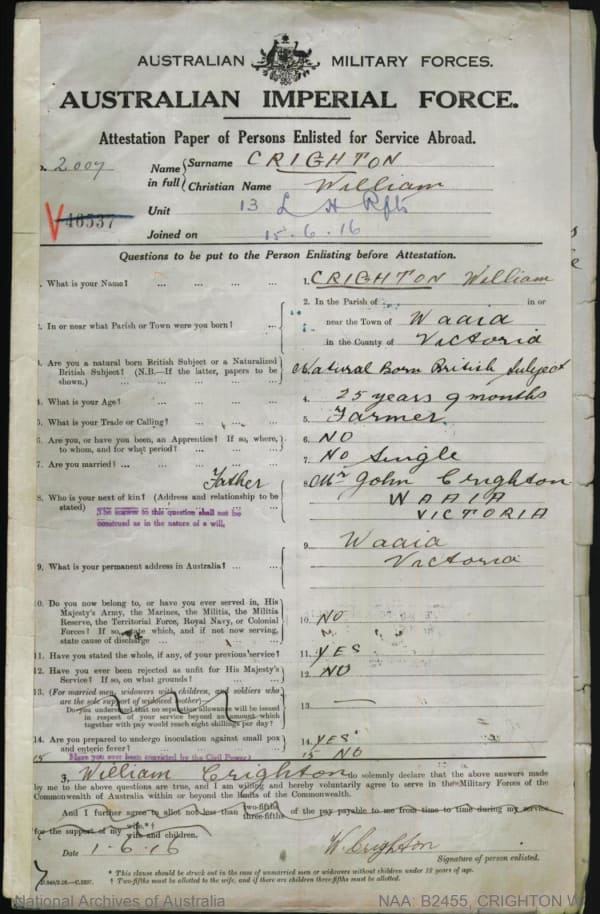 AUSTRALIAN MILITARY FORCES.
AUSTRALIAN IMPERIAL FORCE.
Attestation Paper of Persons Enlisted for Service Abroad.
o. 2007 Name in full { Surname CRIGHTON
Christian Name William
Unit 13 L H Rfts
V 46537
Joined on 15.6.16
Questions to be put to the Person Enlisting before Attestation.
. What is your Name? ... ... ... ... 1. CRIGHTON William
2. In or near what Parish or Town were you born? ... 2. In the Parish of in or
near the Town of Waaia
in the County of Victoria
3. Are you a natural born British Subject or a Naturalized British Subject? (N.B.—If the latter, papers to be shown.) ... ... ... ... Natural Born British Subject
4. What is your Age? ... ... ... ... 4. 25 years 9 months
5. What is your Trade or Calling? ... ... ... 5. Farmer.
6. Are you, or have you been, an Apprentice? If so, where, to whom, and for what period? ... ... ... 6. NO
7. Are you married? ... ... ... ... 7. No Single
8. Who is your next of kin? (Address and relationship to be stated) ... Father 8. Mr John Crighton
WAAIA
VICTORIA
The answer to this question shall not be
construed as in the nature of a will.
9. What is your permanent address in Australia? ... ... 9. Waaia
Victoria
10. Do you now belong to, or have you ever served in, His Majesty's Army, the Marines, the Militia, the Militia Reserve, the Territorial Force, Royal Navy, or Colonial Forces? If so, state which, and if not now serving, state cause of discharge ... ... ... 10. NO
11. Have you stated the whole, if any, of your previous service? 11. YES
12. Have you ever been rejected as unfit for His Majesty's Service? If so, on what grounds? ... ... 12. NO
13. (For married men, widowers with children, and soldiers who are the sole support of widowed mother)—
Do you understand that no separation allowance will be issued in respect of your service beyond an amount which together with pay would reach eight shillings per day? 13. —
14. Are you prepared to undergo inoculation against small pox and enteric fever? ... ... ... 14. YES
15 Have you ever been convicted by the Civil Power? 15 NO
I, William Crighton do solemnly declare that the above answers made
by me to the above questions are true, and I am willing and hereby voluntarily agree to serve in the Military Forces of the
Commonwealth of Australia within or beyond the limits of the Commonwealth.
And I further agree to allot not less than two-fifths three-fifths of the pay payable to me from time to time during my service
for the support of my wife*† wife and children.
Date 1.6.16 W. Crighton
Signature of person enlisted.
* This clause should be struck out in the case of unmarried men or widowers without children under 18 years of age.
† Two-fifths must be allotted to the wife, and if there are children three-fifths must be allotted.
National Archives of Australia NAA: B2455, CRIGHTON W